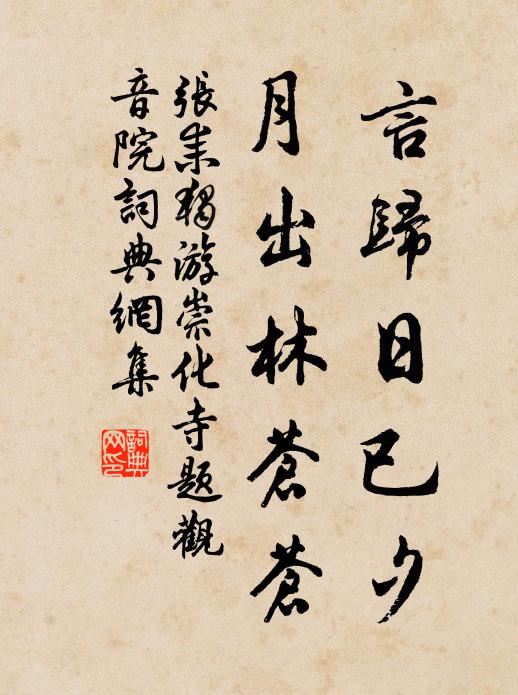 言歸日已夕
月出林蒼蒼
張耒獨游崇化寺題觀
音院詞典網集
詞典
网印